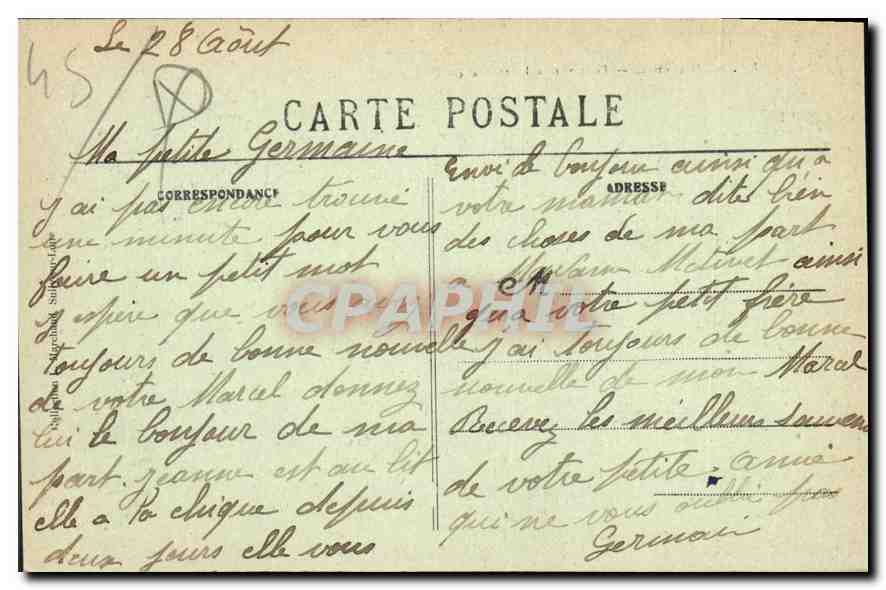 Le 28 Août
45
CARTE POSTALE
Ma petite Germaine
CORRESPONDANCE
j ai pas encore trouvé
une minute pour vous
faire un petit mot
j espère que vous avez
toujours de bonne nouvelle
de votre Marcel donnez
lui le bonjour de ma
part. jeanne est au lit
elle a la chique depuis
deux jours elle vous
ADRESSE
Envoi le bonjour ainsi qu a
votre maman dite bien
des choses de ma part
a Madame ainsi
qu a votre petit frère
j ai toujours de bonne
nouvelle de mon Marcel
Recevez les meilleurs souvenir
de votre petite amie
qui ne vous oublie pas
Germain
Collection Marchand, Sully-sur-Loire
CPAPHIL